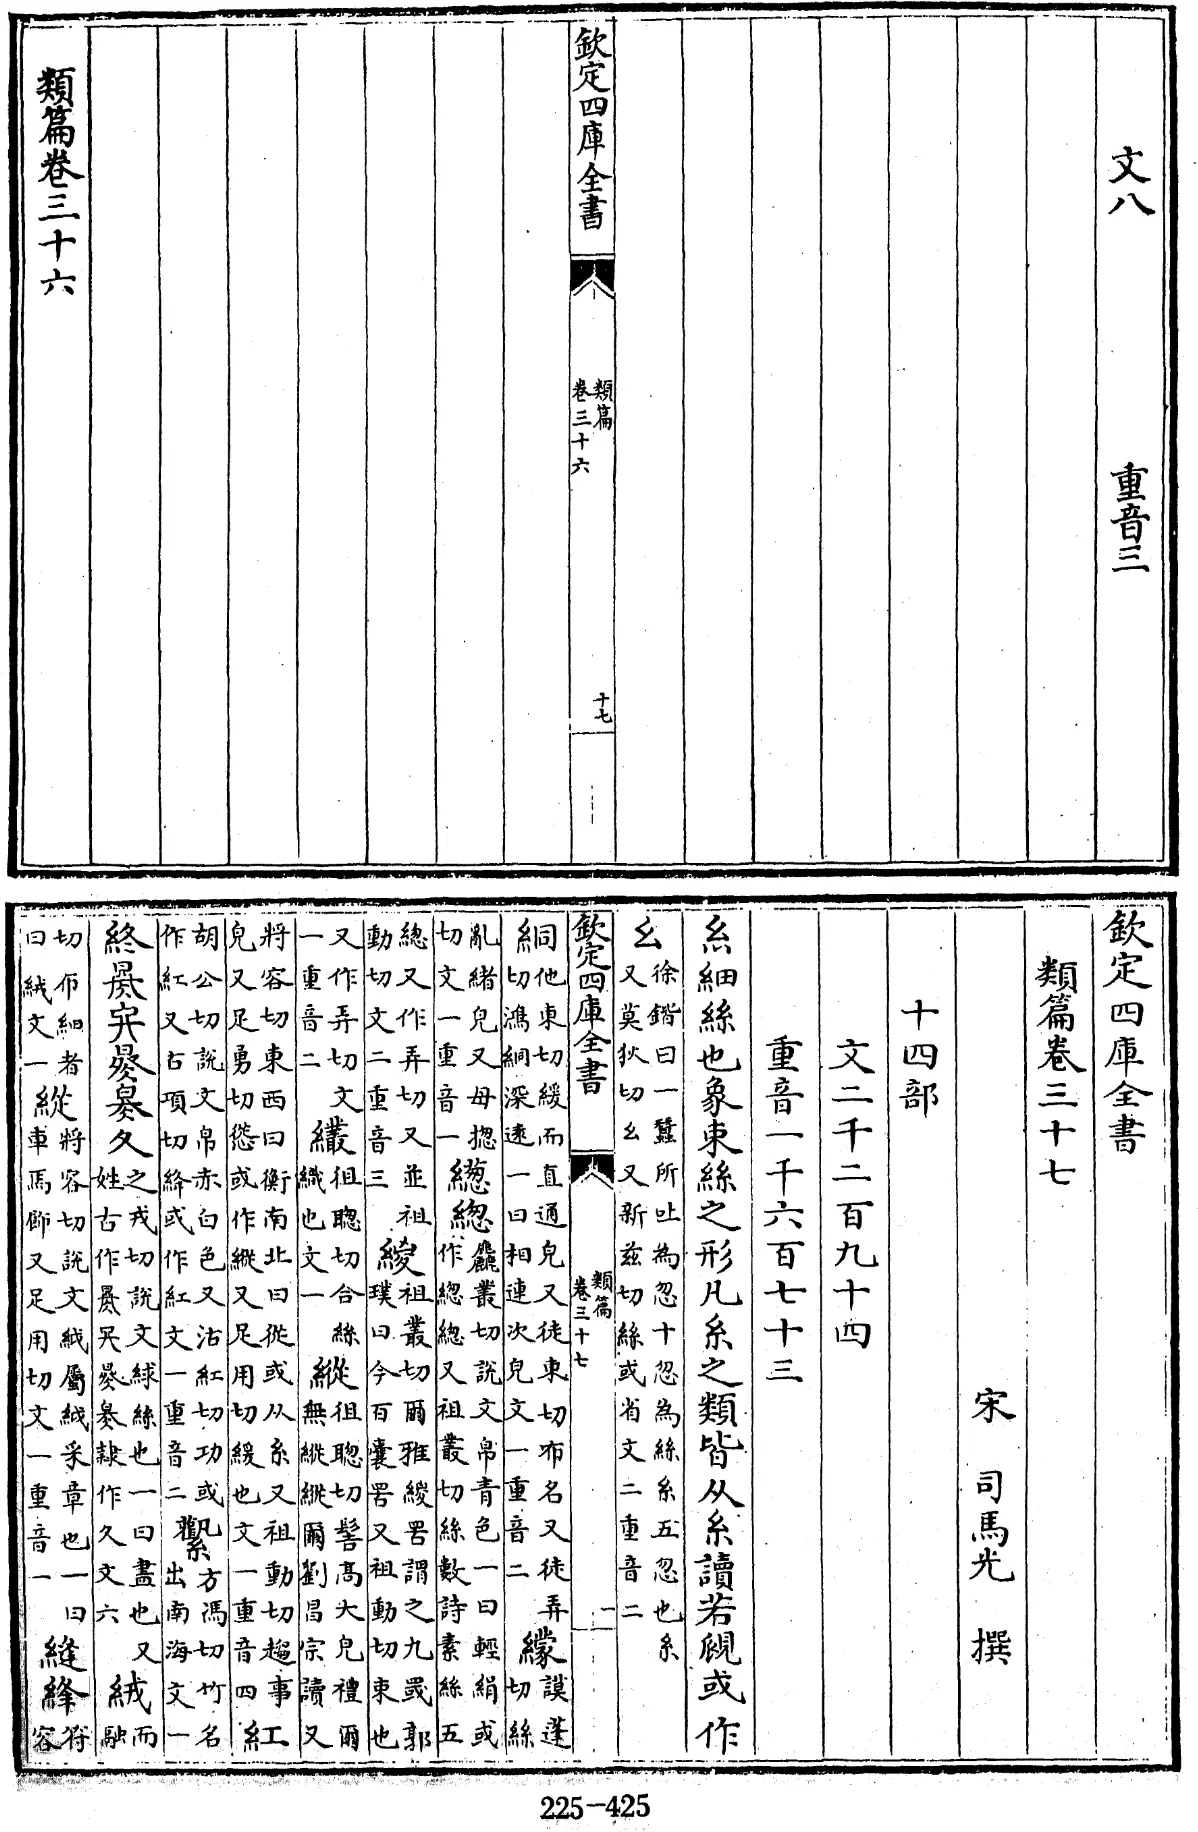 文八　　重音三
欽定四庫全書
類篇
卷三十六
十七
類篇卷三十六
欽定四庫全書
類篇卷三十七
宋　司馬光　撰
十四部
文二千二百九十四
重音一千六百七十三
糸細絲也象束絲之形凡糸之類皆从糸讀若覛或作
幺徐鍇曰一蠶所吐為忽十忽為絲糸五忽也糸
又莫狄切幺又新茲切絲或省文二重音二
欽定四庫全書
類篇
卷三十七
一
絧他東切緩而直通皃又徒東切布名又徒弄
切鴻絧深遠一曰相連次皃文一重音二　繷謨蓬
切絲
亂緒皃又母揔
切文一重音一　繱緫麤叢切說文帛青色一曰輕絹或
作緫總又祖叢切絲數詩素絲五
總又作弄切又並祖
動切文二重音三　緵祖叢切爾雅緵罟謂之九罭郭
璞曰今百囊罟又祖動切束也
又作弄切文
一重音二　繓徂聰切合絲
織也文一　縱徂聰切髻高大皃禮爾
無縱縱爾劉昌宗讀又
將容切東西曰衡南北曰從或从糸又祖動切趨事
皃又足勇切慫或作縱又足用切緩也文一重音四　紅
胡公切說文帛赤白色又沽紅切功或
作紅又古項切絳或作紅文一重音二　䌠方馮切竹名
出南海文一
終㬥宑㬥㬥夂之戎切說文絿絲也一曰盡也又
姓古作㬥宑㬥㬥隸作夂文六　絨而
融
切布細者
曰絨文一　縱將容切說文絨屬絨采章也一曰
車馬飾又足用切文一重音一　縫縫符
容
225-425